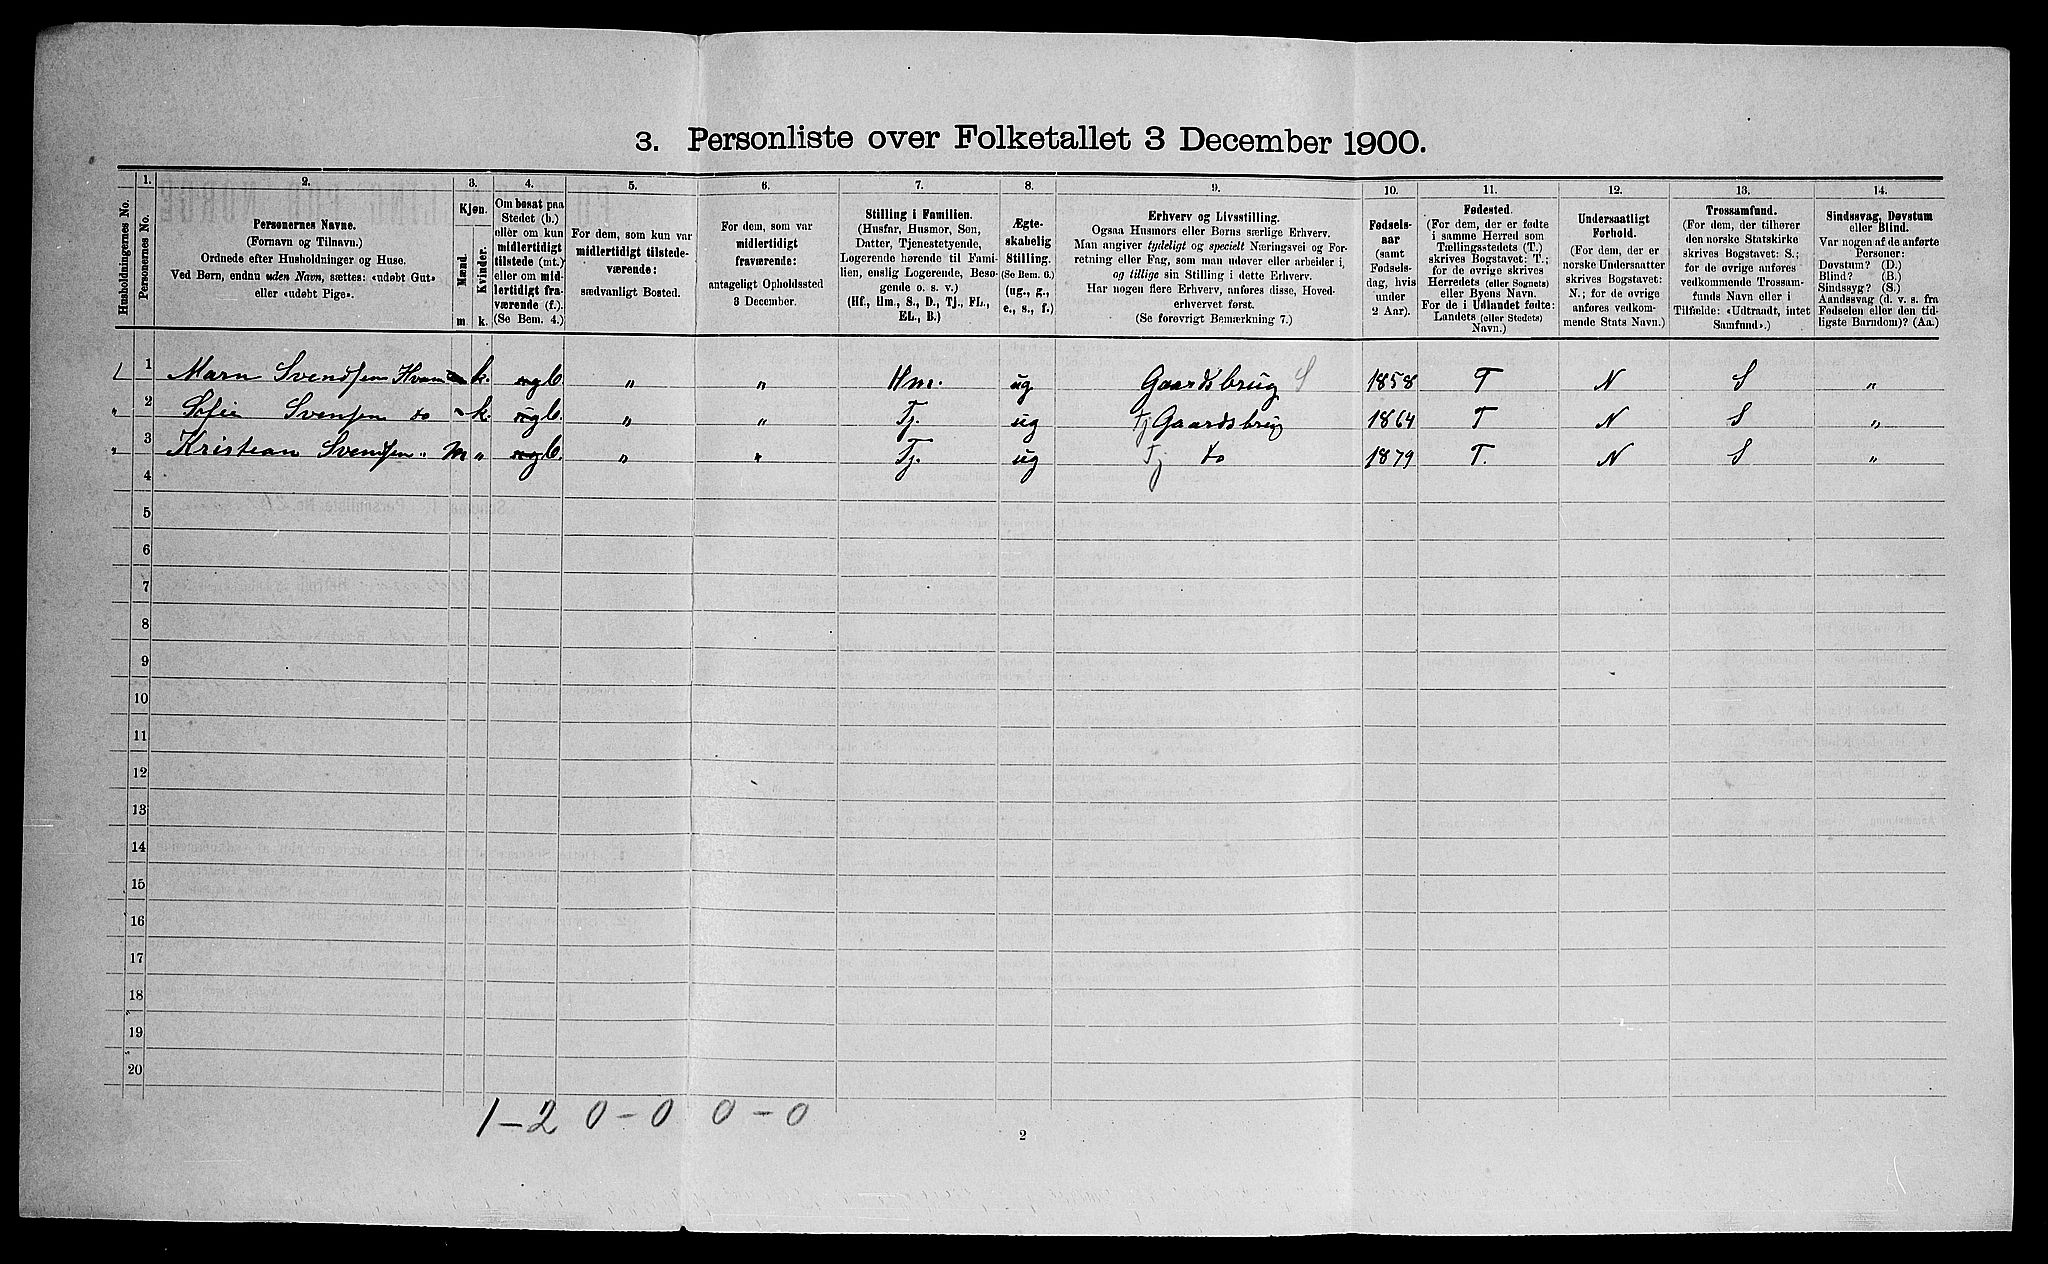 3. Personliste over Folketallet 3 December 1900.
1. 2. 3. 4. 5. 6. 7. 8. 9. 10. 11. 12. 13. 14.
Husholdningernes No.
Personernes No.
Personernes Navne.
(Fornavn og Tilnavn.)
Ordnede efter Husholdninger og Huse.
Ved Børn, endnu uden Navn, sættes: «udøbt Gut»
eller «udøbt Pige».
Kjøn.
Mænd.
Kvinder.
m. k.
Om bosat paa
Stedet (b.)
eller om kun
midlertidigt
tilstede (mt.)
eller om mid-
lertidigt fra-
værende (f.).
(Se Bem. 4.)
For dem, som kun var
midlertidigt tilstede-
værende:
sædvanligt Bosted.
For dem, som var
midlertidigt
fraværende:
antageligt Opholdssted
3 December.
Stilling i Familien.
(Husfar, Husmor, Søn,
Datter, Tjenestetyende,
Logerende hørende til Fami-
lien, enslig Logerende, Besø-
gende o. s. v.)
(Hf., Hm., S., D., Tj., FL.,
EL., B.)
Ægte-
skabelig
Stilling.
(Se Bem. 6.)
(ug., g.,
e., s., f.)
Erhverv og Livsstilling.
Ogsaa Husmors eller Børns særlige Erhverv.
Man angiver tydeligt og specielt Næringsvei og For-
retning eller Fag, som man udøver eller arbeider i,
og tillige sin Stilling i dette Erhverv.
Har nogen flere Erhverv, anføres disse, Hoved-
erhvervet først.
(Se forøvrigt Bemærkning 7.)
Fødsels-
aar
(samt
Fødsels-
dag, hvis
under
2 Aar).
Fødested.
(For dem, der er fødte
i samme Herred som
Tællingsstedets (T.)
skrives Bogstavet: T.;
for de øvrige skrives
Herredets (eller Sognets)
eller Byens Navn.
For de i Udlandet fødte:
Landets (eller Stedets)
Navn.)
Undersaatligt
Forhold.
(For dem, der er
norske Undersaatter
skrives Bogstavet:
N.; for de øvrige
anføres vedkom-
mende Stats Navn.)
Trossamfund.
(For dem, der tilhører
den norske Statskirke
skrives Bogstavet: S.;
for de øvrige anføres
vedkommende Trossam-
funds Navn eller i
Tilfælde: «Udtraadt, intet
Samfund».)
Sindssvag, Døvstum
eller Blind.
Var nogen af de anførte
Personer:
Døvstum? (D.)
Blind? (B.)
Sindssyg? (S.)
Aandssvag (d. v. s. fra
Fødselen eller den tid-
ligste Barndom)? (Aa.)
1 Marn Svendsen Hvam k. b. " " Hm. ug Gaardsbrug S 1858 T N S "
" 2 Sofie Svensen do k. b. " " Tj. ug Tj Gaardsbrug 1864 T N S "
" 3 Kristian Svendsen " m " b. " " Tj. ug Tj do 1879 T. N S "
4
5
6
7
8
9
10
11
12
13
14
15
16
17
18
19
20
1 – 2 0 – 0 0 – 0
2